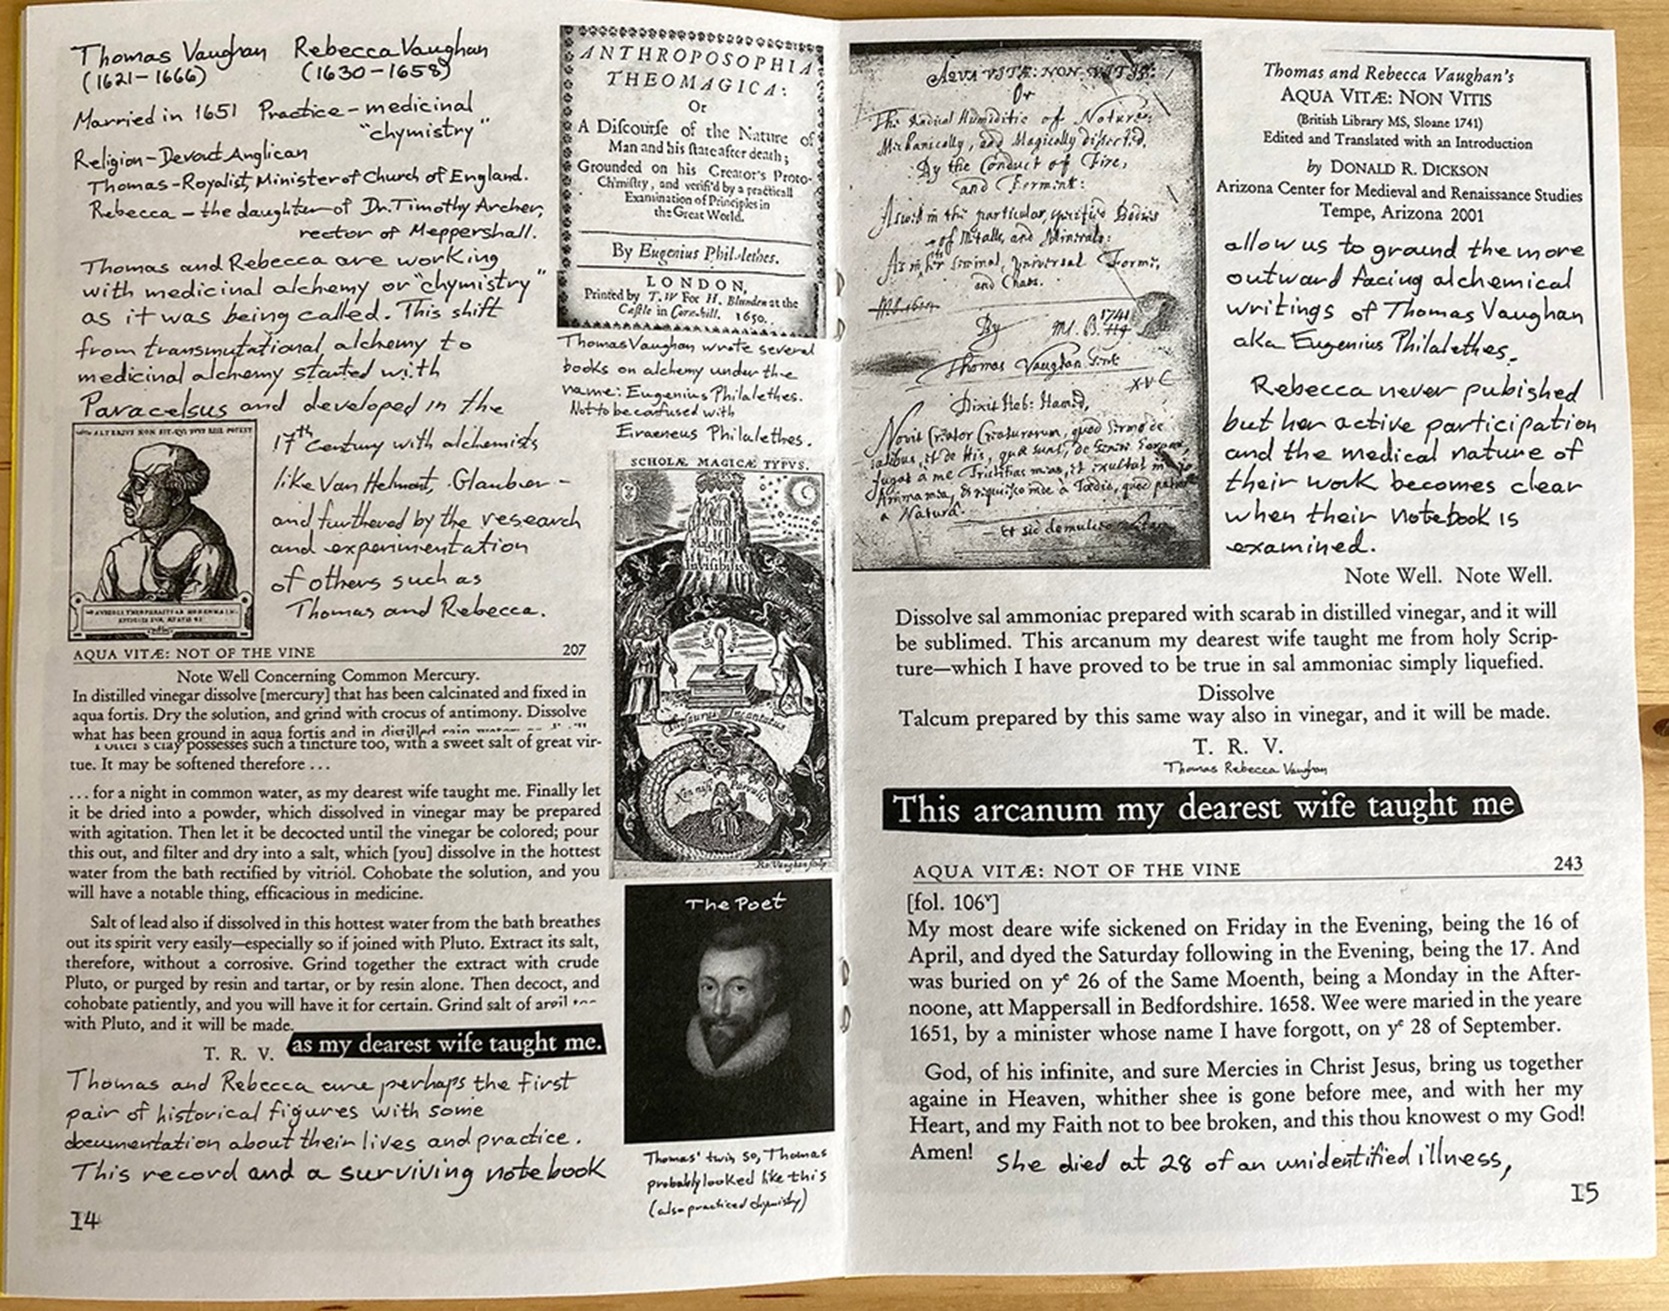 Thomas Vaughan Rebecca Vaughan
(1621-1666) (1630-1658)
Married in 1651 Practice - medicinal
"chymistry"
Religion - Devout Anglican
Thomas - Royalist, Minister of Church of England.
Rebecca - the daughter of Dr. Timothy Archer,
rector of Meppershall.
Thomas and Rebecca are working
with medicinal alchemy or "chymistry"
as it was being called. This shift
from transmutational alchemy to
medicinal alchemy started with
Paracelsus and developed in the
17th Century with alchemists
like Van Helmont, Glauber -
and furthered by the research
and experimentation
of others such as
Thomas and Rebecca.
ALTERIVS NON SIT, QVI SVVS ESSE POTEST
AQUA VITÆ: NOT OF THE VINE 207
Note Well Concerning Common Mercury.
In distilled vinegar dissolve [mercury] that has been calcinated and fixed in
aqua fortis. Dry the solution, and grind with crocus of antimony. Dissolve
what has been ground in aqua fortis and in distilled rain water
Potter's clay possesses such a tincture too, with a sweet salt of great vir-
tue. It may be softened therefore ...
... for a night in common water, as my dearest wife taught me. Finally let
it be dried into a powder, which dissolved in vinegar may be prepared
with agitation. Then let it be decocted until the vinegar be colored; pour
this out, and filter and dry into a salt, which [you] dissolve in the hottest
water from the bath rectified by vitriol. Cohobate the solution, and you
will have a notable thing, efficacious in medicine.
Salt of lead also if dissolved in this hottest water from the bath breathes
out its spirit very easily—especially so if joined with Pluto. Extract its salt,
therefore, without a corrosive. Grind together the extract with crude
Pluto, or purged by resin and tartar, or by resin alone. Then decoct, and
cohobate patiently, and you will have it for certain. Grind salt of argil too
with Pluto, and it will be made.
T. R. V. as my dearest wife taught me.
Thomas and Rebecca are perhaps the first
pair of historical figures with some
documentation about their lives and practice.
This record and a surviving notebook
14
ANTHROPOSOPHIA
THEOMAGICA:
Or
A Discourse of the Nature of
Man and his state after death;
Grounded on his Creator's Proto-
Chimistry, and verifi'd by a practicall
Examination of Principles in
the Great World.
By Eugenius Philalethes.
LONDON,
Printed by T. W For H. Blunden at the
Castle in Corn-hill. 1650.
Thomas Vaughan wrote several
books on alchemy under the
name: Eugenius Philalethes.
Not to be confused with
Eiraeneus Philalethes.
SCHOLÆ MAGICÆ TYPVS.
Mons
Magorum
Invisibilis
Thesaurus Incantatus
Non nisi Parvulis
Ro. Vaughan sculp
The Poet
Thomas' twin so, Thomas
probably looked like this
(also practiced chymistry)
AQUA VITÆ: NON VITIS:
Or
The Radical Humiditie of Nature:
Mechanically, and Magically dissected,
By the Conduct of Fire,
and Ferment:
As well in the particular, specific Bodies
of Metalls, and Minerals:
As in her seminal, Universal Forme,
and Chaos.
By
MS. B. 1741
Thomas Vaughan Gent
XVC
Dixit Heb: Hamed,
Novit Creator Creaturarum, quod Sermo de
salibus, et de His, quæ sunt, de Genere
fugat a me Tristitias meas, et exultat
Amma mea, et requiesco
a Naturâ.
Et sic
Thomas and Rebecca Vaughan's
AQUA VITÆ: NON VITIS
(British Library MS, Sloane 1741)
Edited and Translated with an Introduction
by DONALD R. DICKSON
Arizona Center for Medieval and Renaissance Studies
Tempe, Arizona 2001
allow us to ground the more
outward facing alchemical
writings of Thomas Vaughan
aka Eugenius Philalethes.
Rebecca never pubished
but her active participation
and the medical nature of
their work becomes clear
when their notebook is
examined.
Note Well. Note Well.
Dissolve sal ammoniac prepared with scarab in distilled vinegar, and it will
be sublimed. This arcanum my dearest wife taught me from holy Scrip-
ture—which I have proved to be true in sal ammoniac simply liquefied.
Dissolve
Talcum prepared by this same way also in vinegar, and it will be made.
T. R. V.
Thomas Rebecca Vaughan
This arcanum my dearest wife taught me
AQUA VITÆ: NOT OF THE VINE 243
[fol. 106v]
My most deare wife sickened on Friday in the Evening, being the 16 of
April, and dyed the Saturday following in the Evening, being the 17. And
was buried on ye 26 of the Same Moenth, being a Monday in the After-
noone, att Mappersall in Bedfordshire. 1658. Wee were maried in the yeare
1651, by a minister whose name I have forgott, on ye 28 of September.
God, of his infinite, and sure Mercies in Christ Jesus, bring us together
againe in Heaven, whither shee is gone before mee, and with her my
Heart, and my Faith not to bee broken, and this thou knowest o my God!
Amen! She died at 28 of an unidentified illness,
15